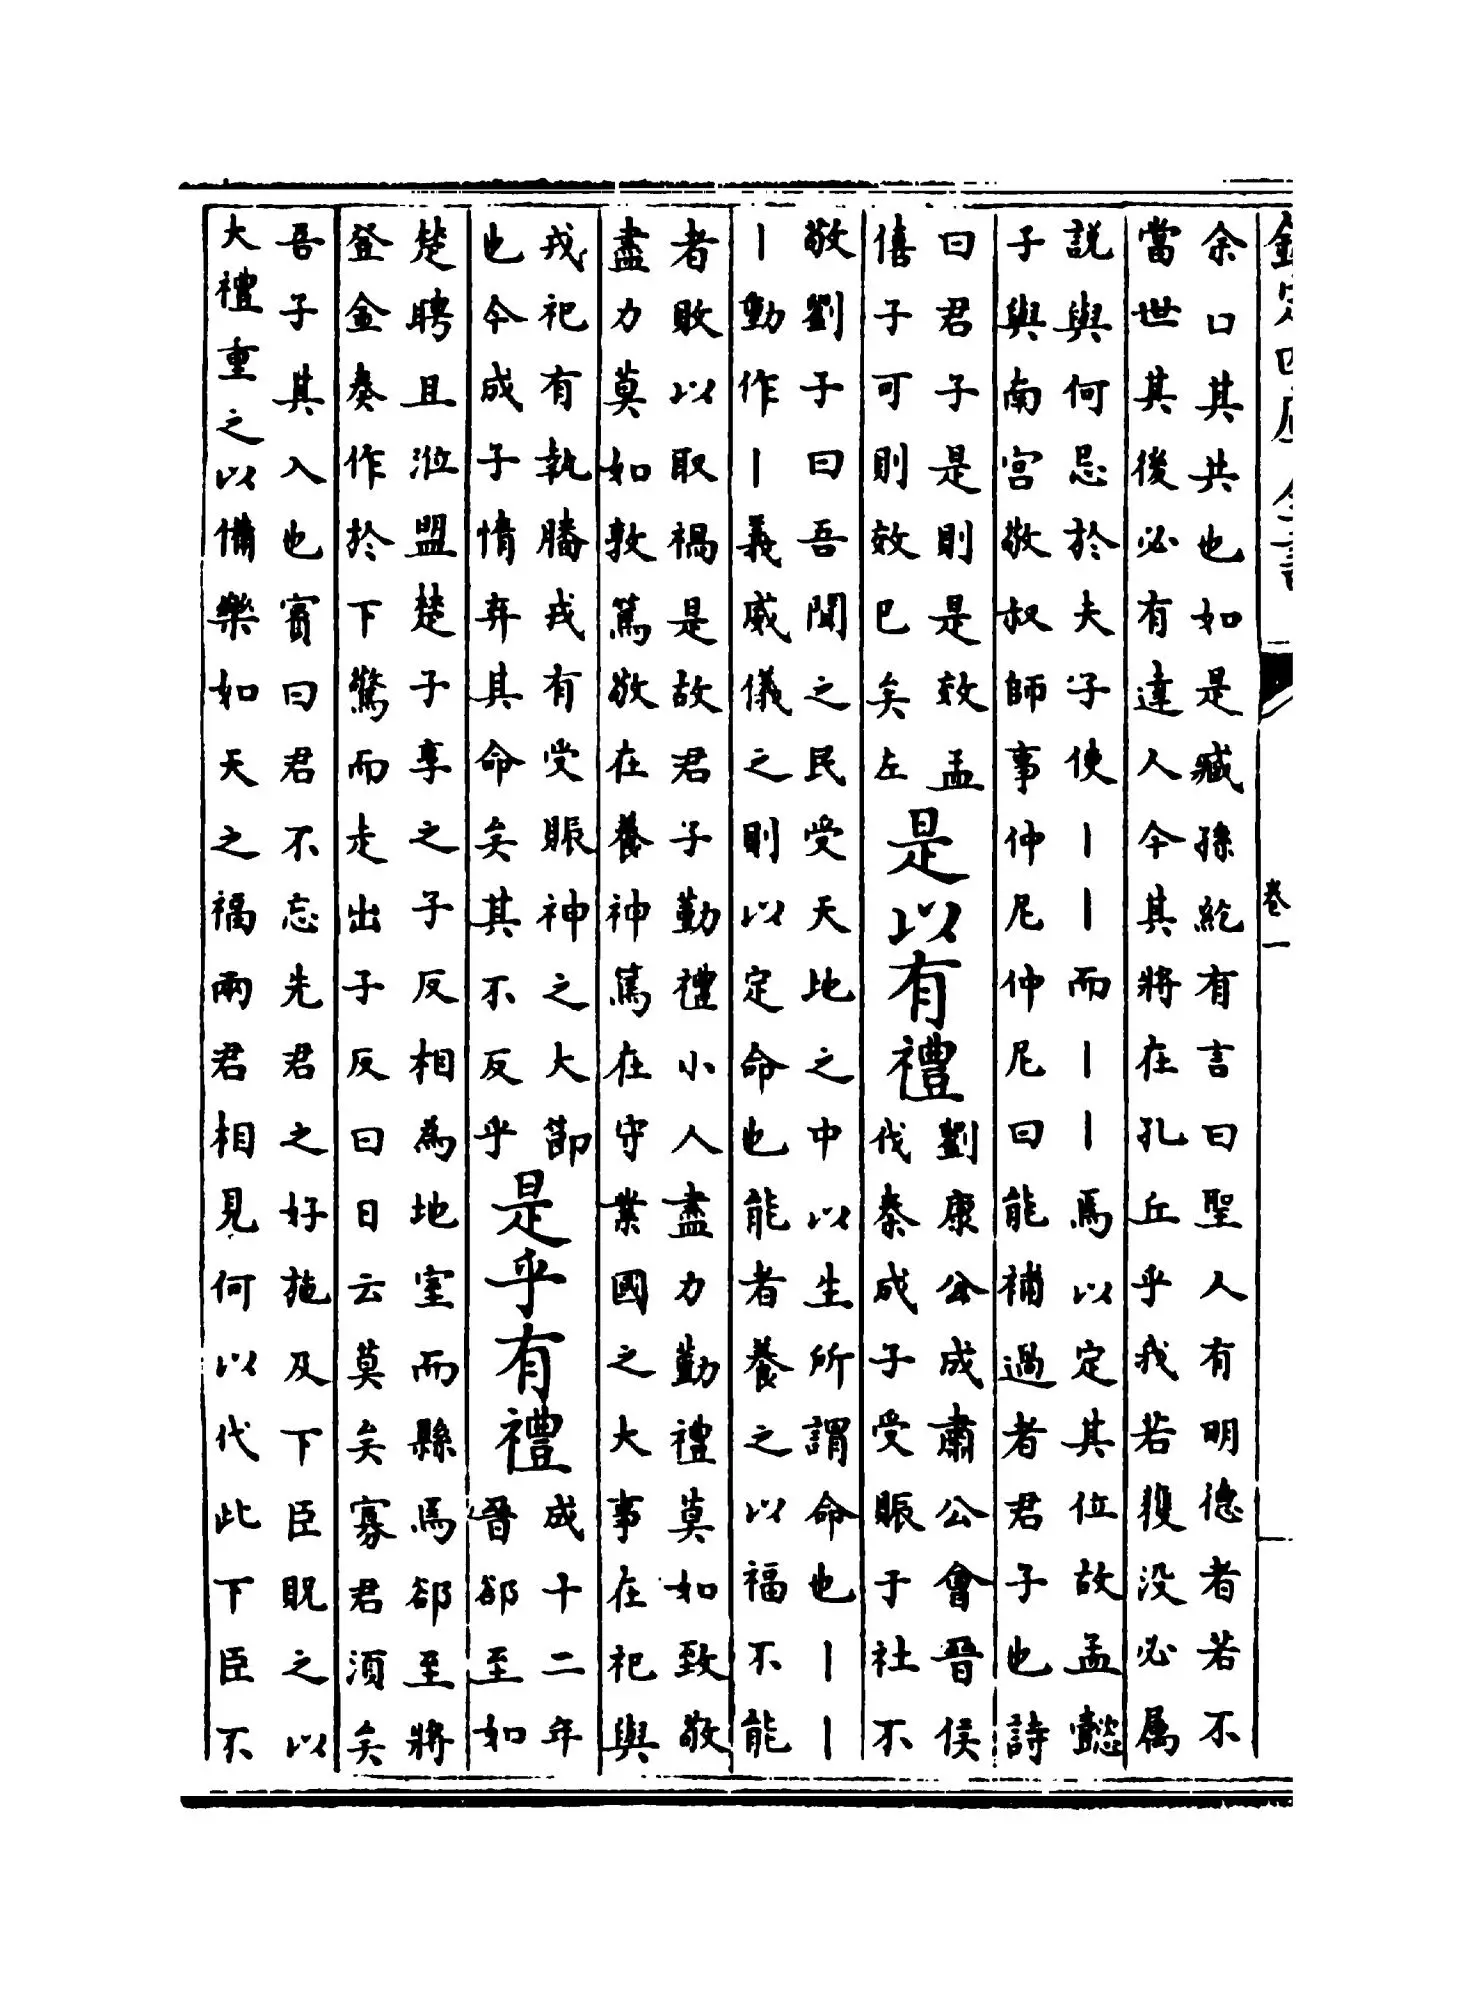 欽定四庫全書
卷一
余口其共也如是臧孫紇有言曰聖人有明德者若不
當世其後必有達人今其將在孔丘乎我若獲没必屬
説與何忌於夫子使丨丨而丨丨焉以定其位故孟懿
子與南宫敬叔師事仲尼仲尼曰能補過者君子也詩
曰君子是則是效孟
僖子可則效巳矣左
是以有禮
劉康公成肅公會晉侯
伐秦成子受賑于社不
敬劉子曰吾聞之民受天地之中以生所謂命也丨丨
丨動作丨義威儀之則以定命也能者養之以福不能
者敗以取禍是故君子勤禮小人盡力勤禮莫如致敬
盡力莫如敦篤敬在養神篤在守業國之大事在祀與
戎祀有執膰戎有受賑神之大節
也今成子惰弃其命矣其不反乎
是乎有禮
成十二年
晉郤至如
楚聘且涖盟楚子享之子反相為地室而縣焉郤至將
登金奏作於下驚而走出子反曰日云莫矣寡君須矣
吾子其入也賓曰君不忘先君之好施及下臣貺之以
大禮重之以備樂如天之福兩君相見何以代此下臣不